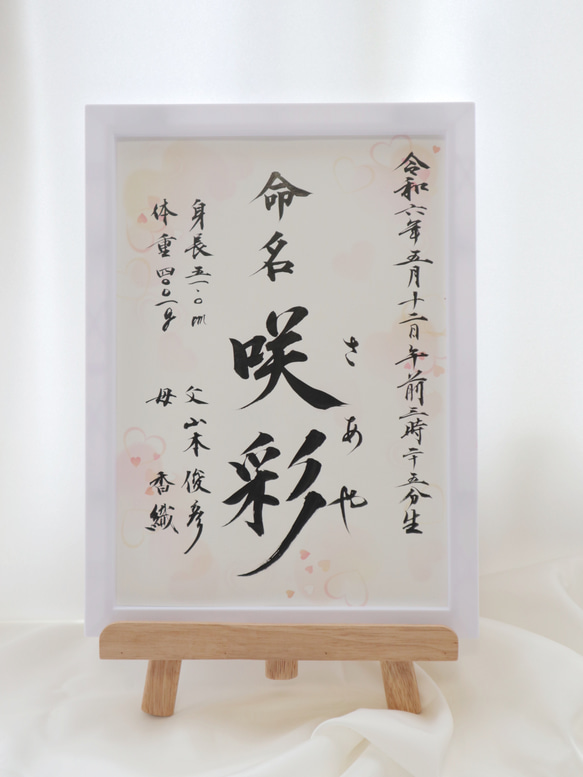 令和六年五月十二日午前三時二十五分生
さあや
命名 咲彩
身長五一.〇m
体重四〇〇一g
父 山本俊彦
母 香織